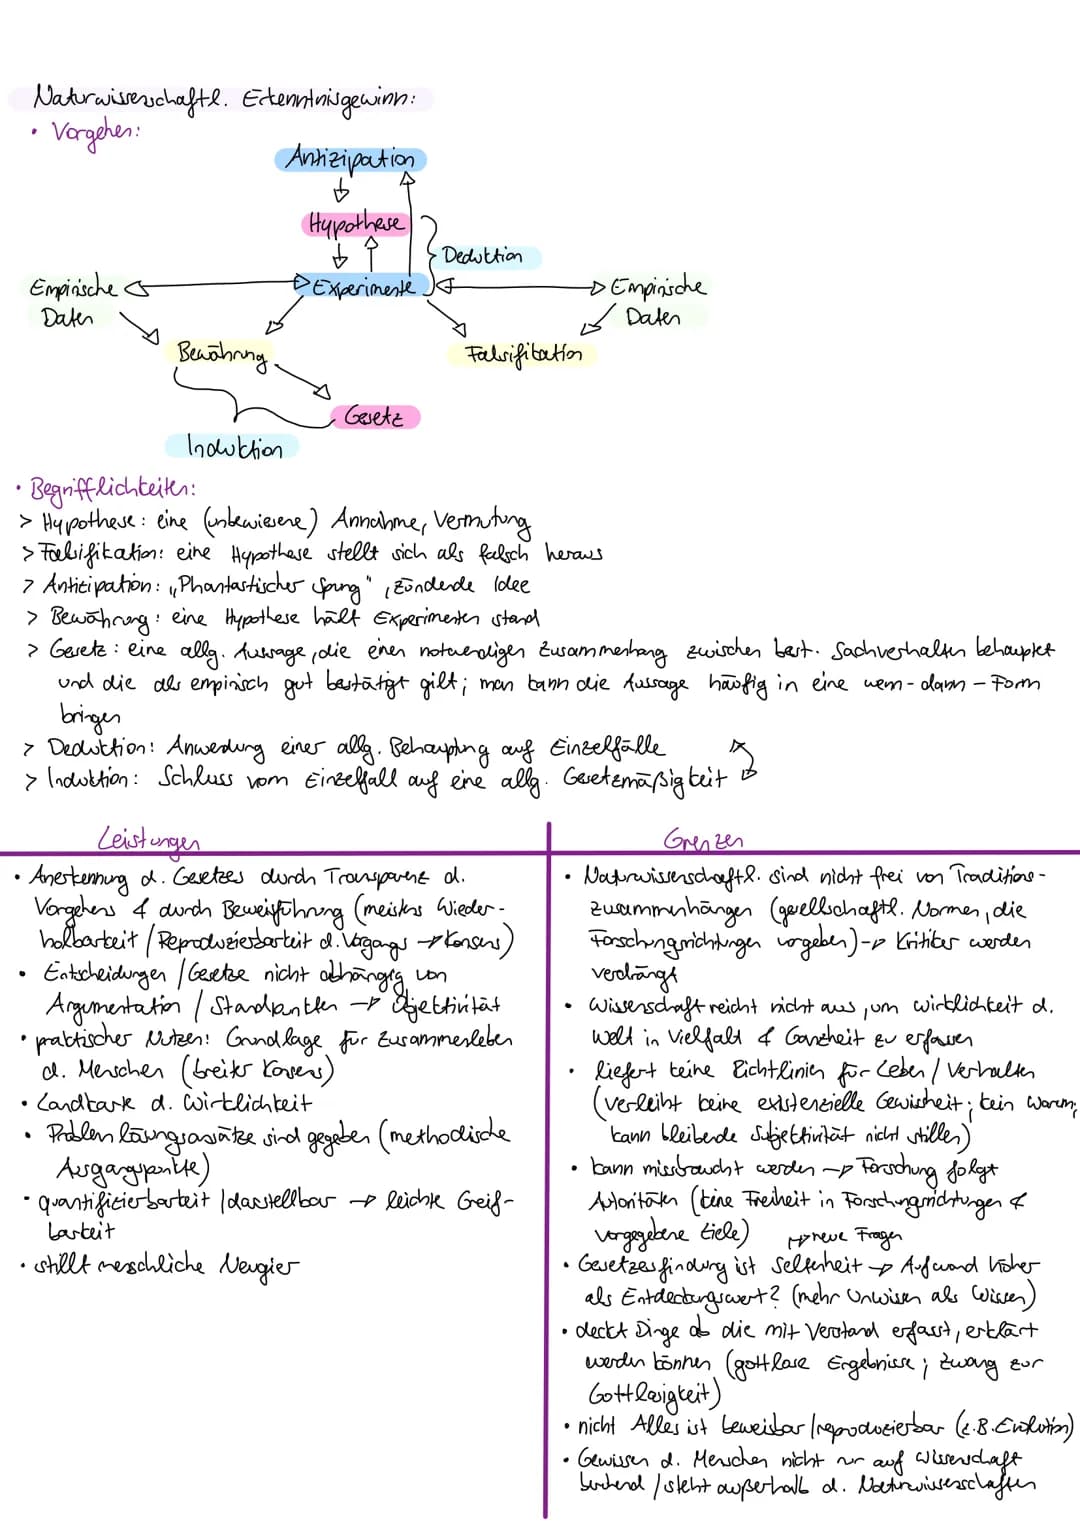 Naturwissenschaftl. Erkenntnisgewinn:
• Vorgehen:
Antizipation
Hypothese
Deduktion
Empirische Daten
Experimente
Empirische Daten
Bewährung
Falsifikation
Gesetz
Induktion
• Begrifflichkeiten:
> Hypothese: eine (unbewiesene) Annahme, Vermutung
> Falsifikation: eine Hypothese stellt sich als falsch heraus
> Anticipation: „Phantastischer Sprung", zündende Idee
> Bewährung: eine Hypothese hält Experimenten stand
> Gesetz: eine allg. Aussage, die einen notwendigen Zusammenhang zwischen best. Sachverhalten behauptet
und die als empirisch gut bestätigt gilt; man kann die Aussage häufig in eine wenn-dann-Form
bringen
> Deduktion: Anwendung einer allg. Behauptung auf Einzelfälle
> Induktion: Schluss vom Einzelfall auf eine allg. Gesetzmäßigkeit
Leistungen
• Anerkennung d. Gesetzes durch Transparenz d.
Vorgehens & durch Beweisführung (meistens Wieder-
holbarkeit / Reproduzierbarkeit d. Vorgangs → Konsens)
• Entscheidungen / Gesetze nicht abhängig von
Argumentation / Standpunkten → Objektivität
• praktischer Nutzen: Grundlage für Zusammenleben
d. Menschen (breiter Konsens)
• Landkarte d. Wirklichkeit
• Problemlösungsansätze sind gegeben (methodische
Ausgangspunkte)
• quantifizierbarkeit / darstellbar → leichte Greif-
barkeit
• stillt menschliche Neugier
Grenzen
• Naturwissenschaftl. sind nicht frei von Traditions-
zusammenhängen (gesellschaftl. Normen, die
Forschungsrichtungen vorgeben) → Kritiker werden
verdrängt
• Wissenschaft reicht nicht aus, um Wirklichkeit d.
Welt in Vielfalt & Ganzheit zu erfassen
• liefert keine Richtlinien für Leben / Verhalten
(verleiht keine existenzielle Gewissheit; kein Warum;
kann bleibende Subjektivität nicht stillen)
• kann missbraucht werden → Forschung folgt
Autoritäten (keine Freiheit in Forschungsrichtungen &
vorgegebene Ziele) → neue Fragen
• Gesetzesfindung ist Seltenheit → Aufwand höher
als Entdeckungswert? (mehr Unwissen als Wissen)
• deckt Dinge ab die mit Verstand erfasst, erklärt
werden können (gottlose Ergebnisse; Zwang zur
Gottlosigkeit)
• nicht Alles ist beweisbar / reproduzierbar (z.B. Evolution)
• Gewissen d. Menschen nicht nur auf Wissenschaft
beruhend / steht außerhalb d. Naturwissenschaften